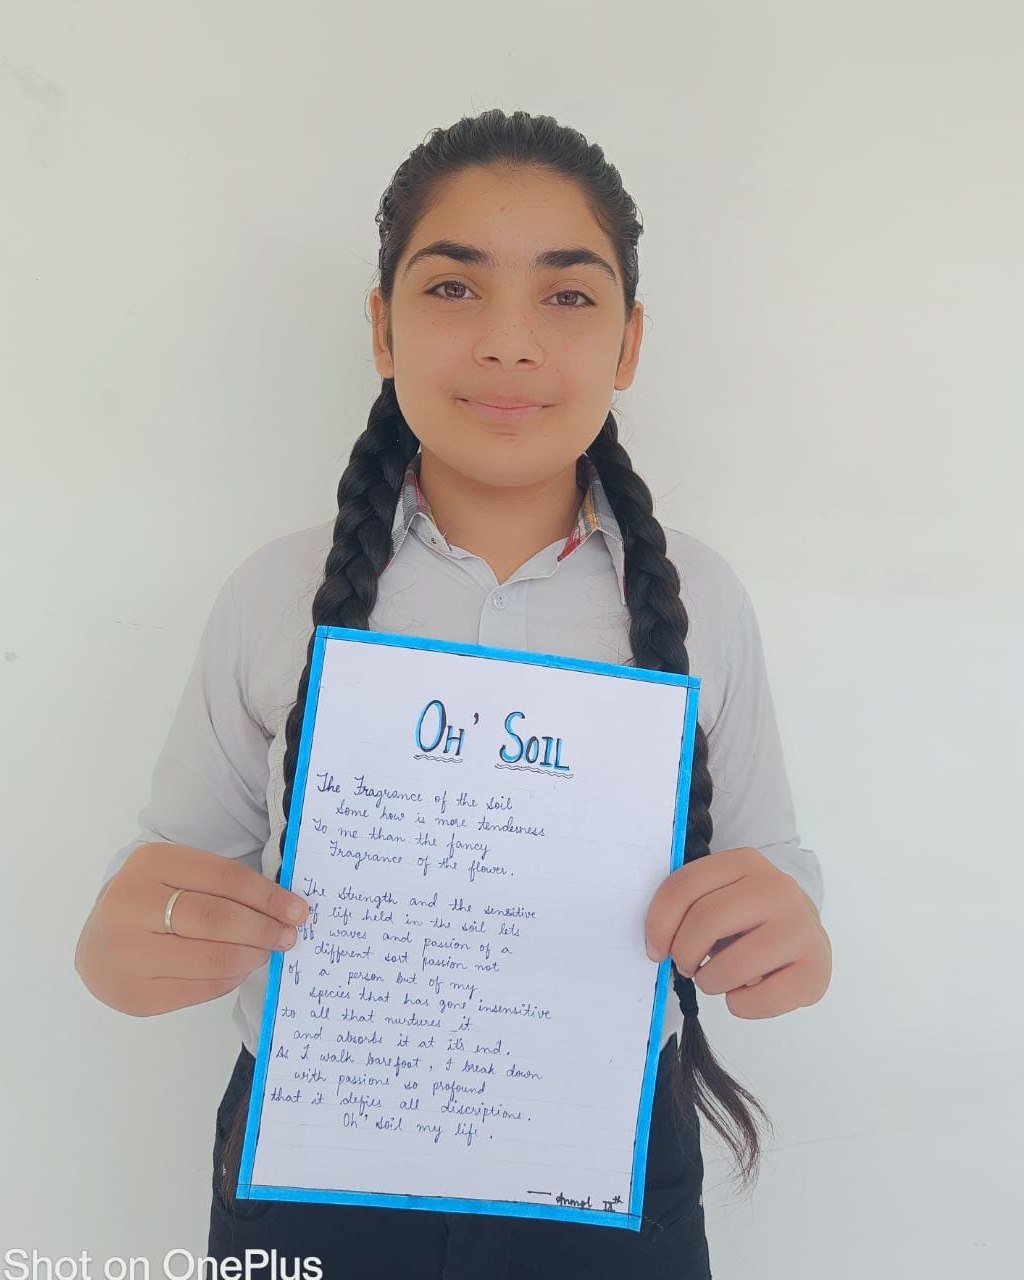 OH' SOIL
The Fragrance of the soil
Some how is more tenderness
To me than the fancy
Fragrance of the flower.
The strength and the sensitive
of life held in the soil lets
off waves and passion of a
different sort passion not
of a person but of my
species that has gone insensitive
to all that nurtures it
and absorbs it at it's end.
As I walk barefoot, I break down
with passions so profound
that it defies all discriptions.
Oh' soil my life.
— Anmol IXth
Shot on OnePlus